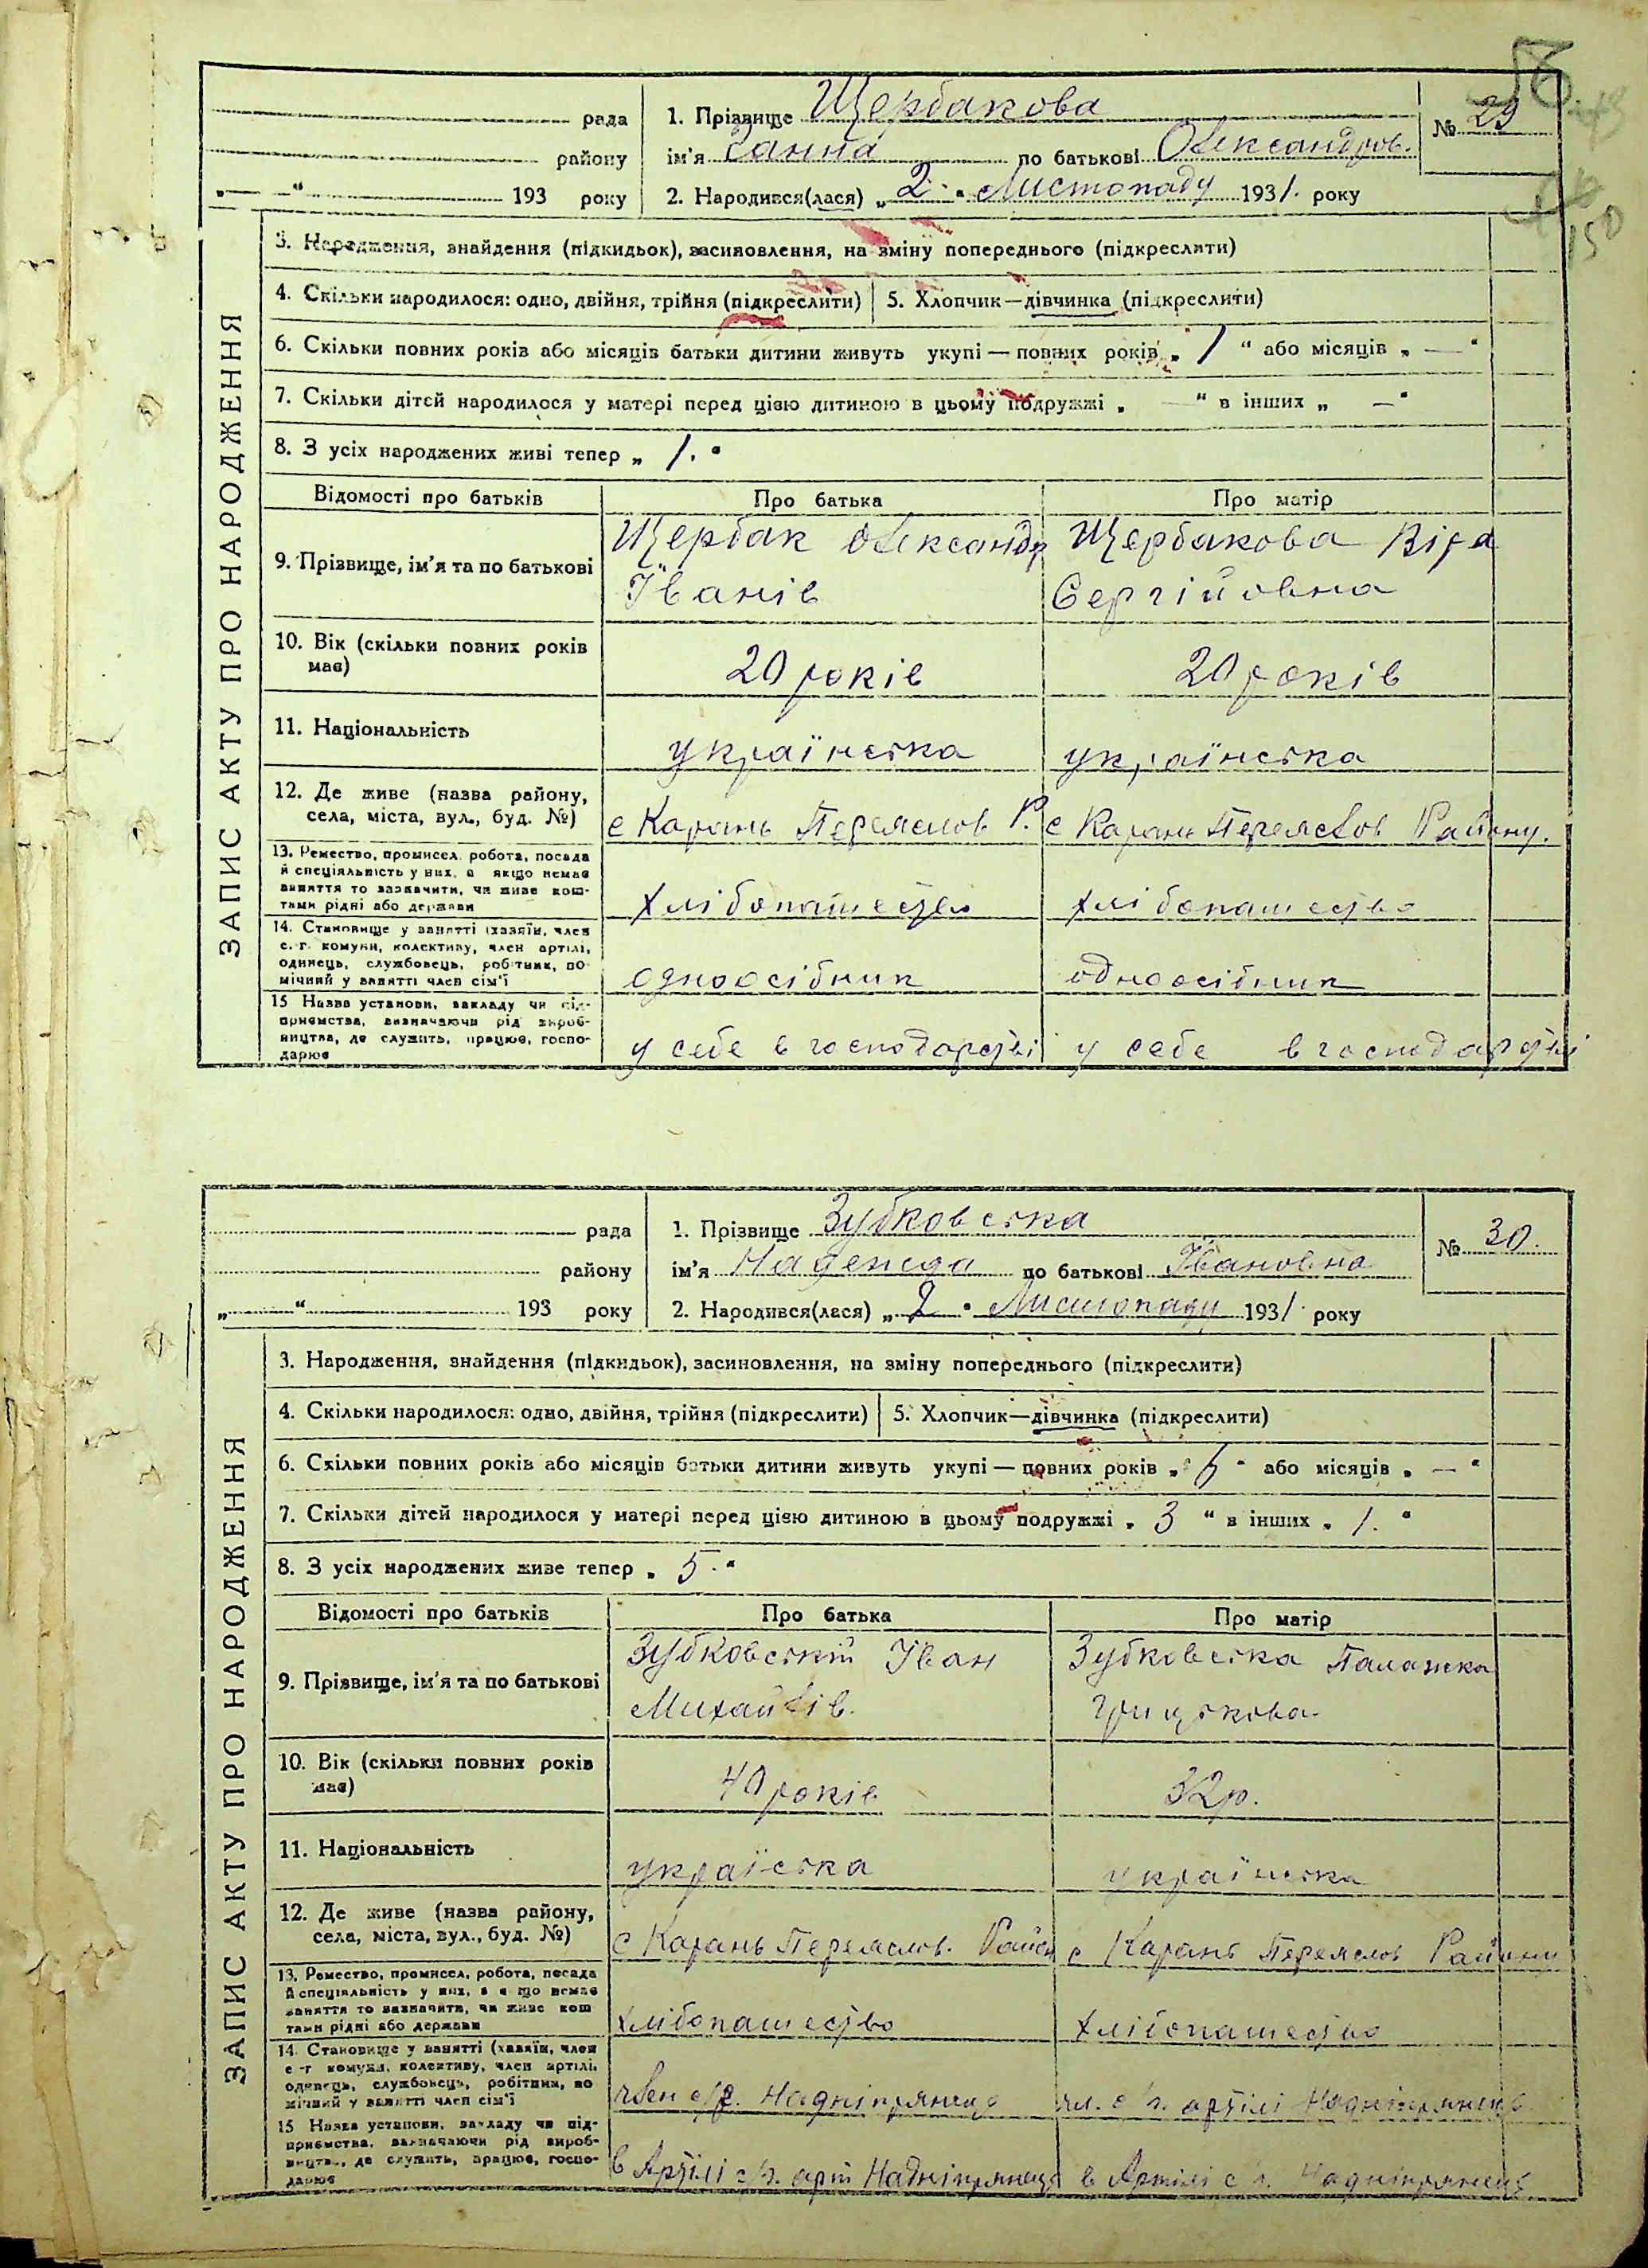 рада
1. Прізвище Щербакова
№ 29
району
ім'я Ганна по батькові Олександров.
„— “ 193 року
2. Народився(лася) „ 2 “ Листопаду 1931. року
150
ЗАПИС АКТУ ПРО НАРОДЖЕННЯ
3. Народження, знайдення (підкидьок), засиновлення, на зміну попереднього (підкреслити)
4. Скільки народилося: одно, двійня, трійня (підкреслити) 5. Хлопчик—дівчинка (підкреслити)
6. Скільки повних років або місяців батьки дитини живуть укупі — повних років „ 1 “ або місяців „ — “
7. Скільки дітей народилося у матері перед цією дитиною в цьому подружжі „ — “ в інших „ — “
8. З усіх народжених живі тепер „ 1. “
Відомості про батьків Про батька Про матір
9. Прізвище, ім'я та по батькові
Щербак Олександр Іванів
Щербакова Віра Сергійовна
10. Вік (скільки повних років має)
20 років
20 років
11. Національність
українська
українська
12. Де живе (назва району, села, міста, вул., буд. №)
с Карань Переяслов Р.
с Карань Переяслов Району.
13. Ремество, промисел, робота, посада й спеціяльність у них, а якщо немає заняття то зазначити, чи живе коштами рідні або держави
хлібопашество
хлібопашество
14. Становище у занятті (хазяїн, член с.-г. комуни, колективу, член артілі, одинець, службовець, робітник, помічний у занятті член сім'ї
одноосібник
одноосібник
15 Назва установи, закладу чи підприємства, визначаючи рід виробництва, де служить, працює, господарює
у себе в господарстві
у себе в господарстві
рада
1. Прізвище Зубковська
№ 30.
району
ім'я Надежда по батькові Івановна
„ “ 193 року
2. Народився(лася) „ 2 “ Листопаду 1931. року
ЗАПИС АКТУ ПРО НАРОДЖЕННЯ
3. Народження, знайдення (підкидьок), засиновлення, на зміну попереднього (підкреслити)
4. Скільки народилося: одно, двійня, трійня (підкреслити) 5. Хлопчик—дівчинка (підкреслити)
6. Скільки повних років або місяців батьки дитини живуть укупі — повних років „ 6 “ або місяців „ — “
7. Скільки дітей народилося у матері перед цією дитиною в цьому подружжі „ 3 “ в інших „ 1. “
8. З усіх народжених живе тепер „ 5. “
Відомості про батьків Про батька Про матір
9. Прізвище, ім'я та по батькові
Зубковський Іван Михайлів.
Зубковська Палажка Грицькова
10. Вік (скільки повних років має)
40 років
32 р.
11. Національність
україська
українська
12. Де живе (назва району, села, міста, вул., буд. №)
с Карань Переяслов. Район
с Карань Переяслов Району
13. Ремество, промисел, робота, посада й спеціяльність у них, а якщо немає заняття то зазначити, чи живе коштами рідні або держави
хлібопашество
хлібопашество
14. Становище у занятті (хазяїн, член с.-г. комуни, колективу, член артілі, одинець, службовець, робітник, помічний у занятті член сім'ї
член с/г. Надніпрянець
чл. с/г. артілі Надніпрянець
15 Назва установи, закладу чи підприємства, визначаючи рід виробництва, де служить, працює, господарює
в Артілі с/г. арт Надніпрянець
в Артілі с/г. Надніпрянець